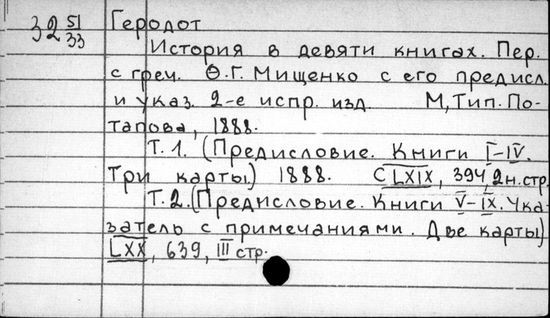 32 51/33 Геродот
История в девяти книгах. Пер.
с греч. Ѳ.Г. Мищенко с его предисл.
и указ. 2-е испр. изд. М, Тип. По-
тапова, 1888.
Т. 1. (Предисловие. Книги I-IV.
Три карты) 1888. С LXIX, 394, 2 н. стр.
Т. 2. (Предисловие. Книги V-IX. Ука-
затель с примечаниями. Две карты)
LXX, 639, III стр.